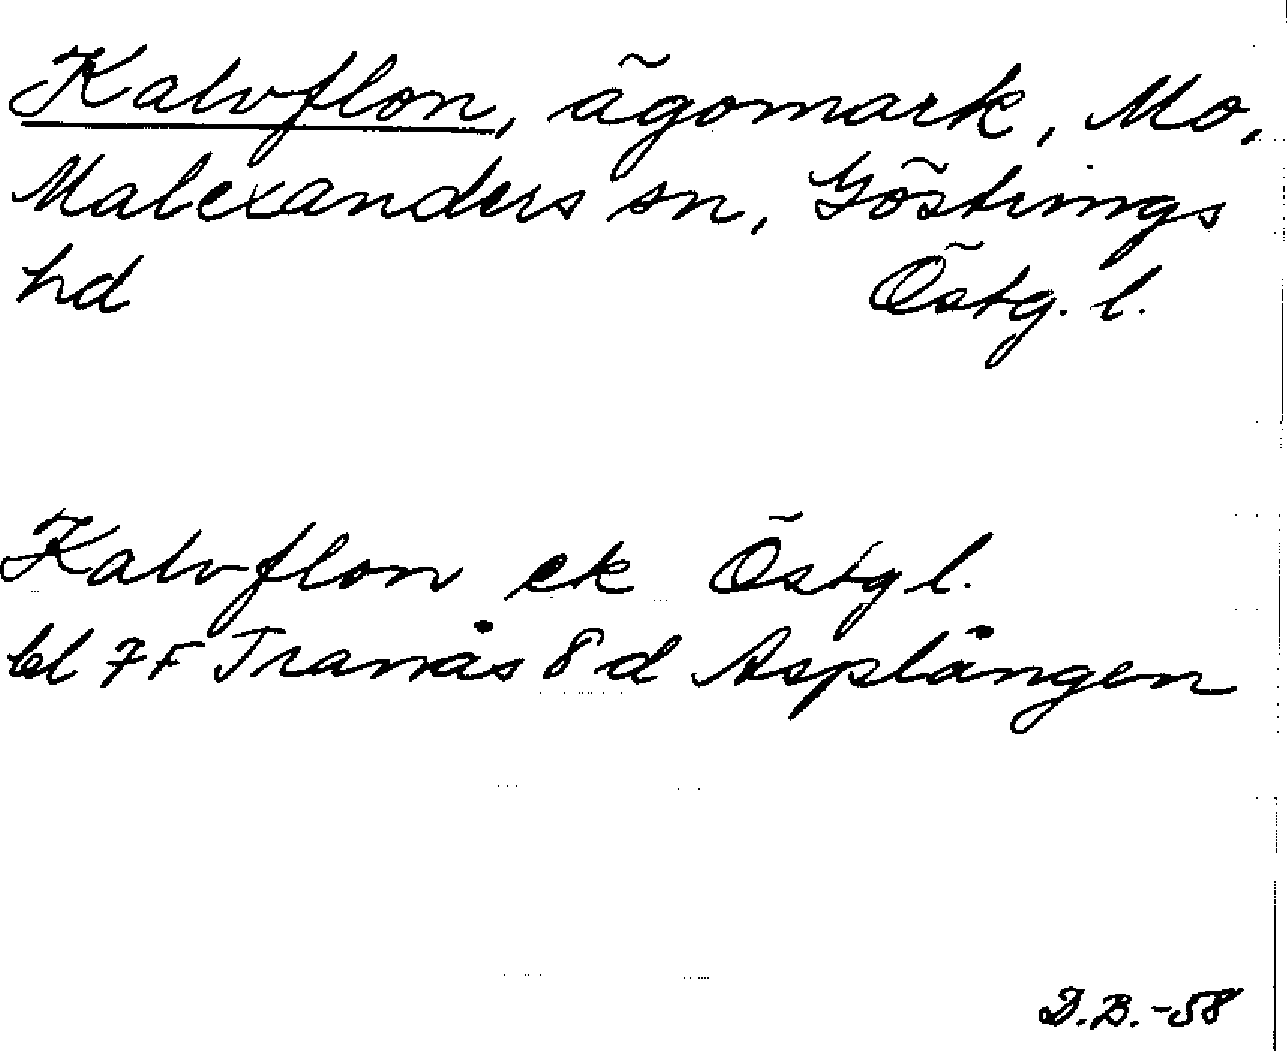 Kalvflon, ägomark, Mo,
Malexanders sn, Göstrings
hd Östg. l.
Kalvflon ek Östg l.
bl 7F Tranås 8 d Asplången
D.B.-58